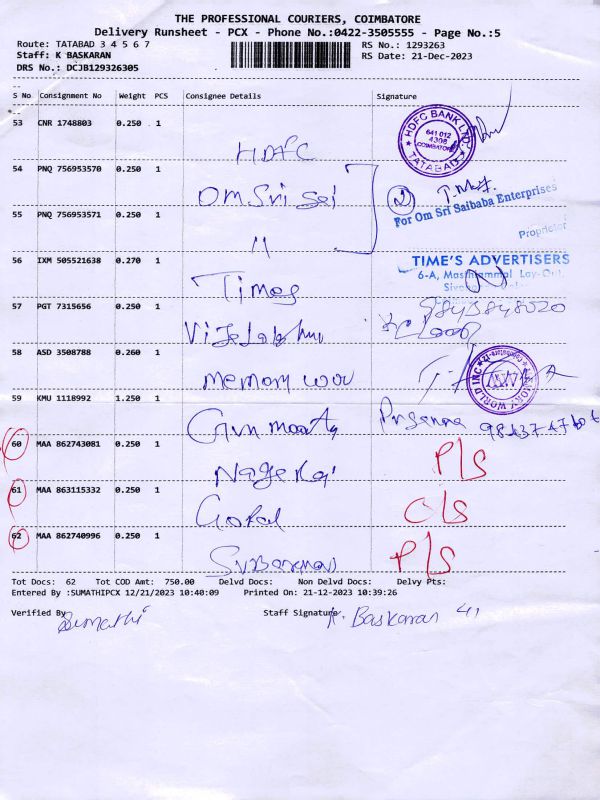 THE PROFESSIONAL COURIERS, COIMBATORE
Delivery Runsheet - PCX - Phone No.:0422-3505555 - Page No.:5
Route: TATABAD 3 4 5 6 7 RS No.: 1293263
Staff: K BASKARAN RS Date: 21-Dec-2023
DRS No.: DCJB129326305
S No Consignment No Weight PCS Consignee Details Signature
53 CNR 1748803 0.250 1
HDFC
HDFC BANK LTD. 641 012 4308 COIMBATORE TATABAD
54 PNQ 756953570 0.250 1
Om Sri Sai
2
For Om Sri Saibaba Enterprises
55 PNQ 756953571 0.250 1
11
Proprietor
56 IXM 505521638 0.270 1
Times
TIME'S ADVERTISERS
6-A, Lay-Out,
57 PGT 7315656 0.250 1
58 ASD 3508788 0.260 1
WORLD INC
59 KMU 1118992 1.250 1
60 MAA 862743081 0.250 1
P/S
61 MAA 863115332 0.250 1
Gokul
62 MAA 862740996 0.250 1
P/S
Tot Docs: 62 Tot COD Amt: 750.00 Delvd Docs: Non Delvd Docs: Delvy Pts:
Entered By :SUMATHIPCX 12/21/2023 10:40:09 Printed On: 21-12-2023 10:39:26
Verified By Sumathi Staff Signature K. Baskaran